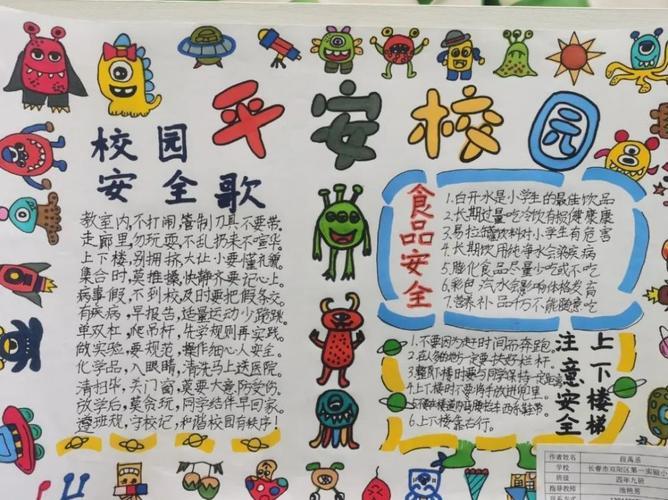 平安校园
校园
安全歌
教室内,不打闹,管制刀具不要带。
走廊里,勿玩耍,不乱扔来不喧华。
上下楼,别拥挤,大让小要懂礼貌
集合时,莫推搡,快静齐要记心上。
病事假,不到校,及时要把假条交。
有疾病,早报告,适量运动少跑跳。
单双杠,爬吊杆,先学规则再实践。
做实验,要规范,操作细心人安全。
化学品,入眼睛,清洗马上送医院
清扫毕,关门窗,莫要大意防受伤。
放学后,莫贪玩,同学结伴早回家。
遵班规,守校记,和谐校园有秩序!
食品安全
1.白开水是小学生的最佳饮品
2.长期过量吃冷饮有损健康
3.易拉罐饮料对小学生有危害
4.长期饮用纯净水会染疾病
5.膨化食品尽量少吃或不吃
6.彩色汽水会影响体格发育
7.营养补品千万不能随意吃
上下楼梯
注意安全
1.不要因为赶时间而奔跑。
2.在人多的地方一定要扶好栏杆。
3.整队下楼时要与同学保持一定距离
4.上下楼时不要将手放进兜里
6.上下楼靠右行。
作者姓名 段禹丞
学校 长春市双阳区第一实验小
四年九班
指导教师